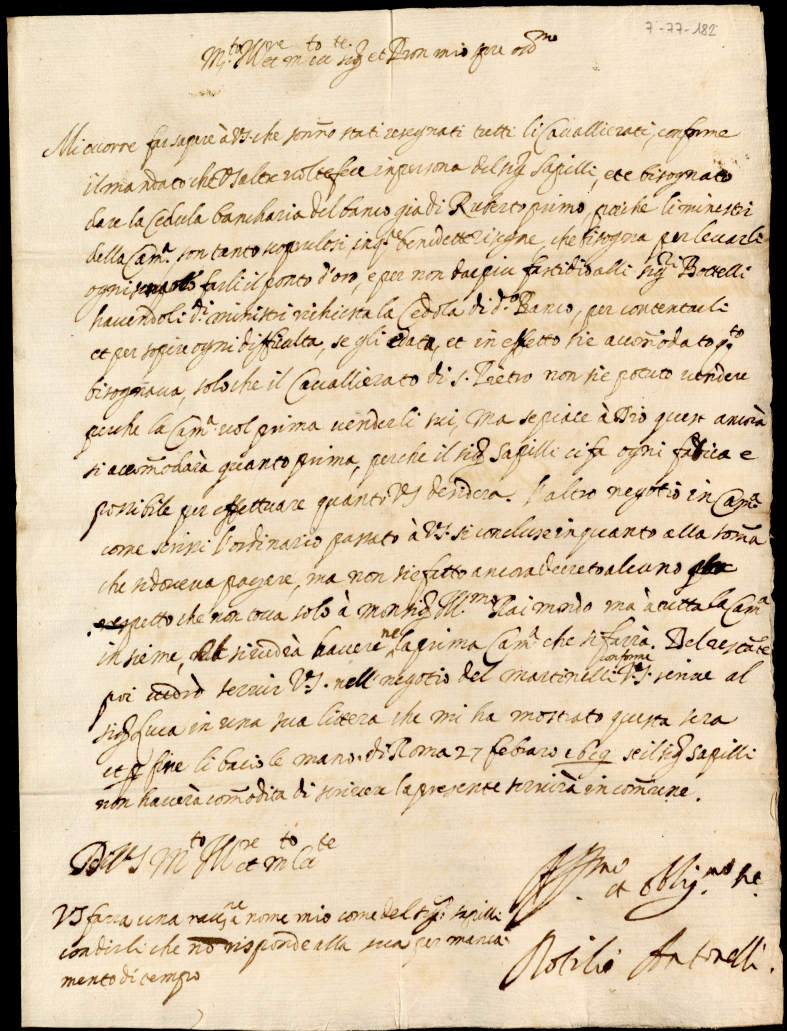 7-77-182
M.to Ill.re et m.to Ecc.te sig.r et Pron mio sempre oss.mo
Mi occorre far sapere à VS. che sonno stati resegnati tutti li Cavallierati, conforme
il mandato che VS altre volte fece in persona del sig.r Sapilli, et è bisognato
dare la Cedula bancharia del banco già di Ruberto primo, poiche li ministri
della Cam.a son tanto scropulosi, in q.te benedette risegne, che bisogna per levarli
ogni farli il ponto d'oro, e per non dar piu fastidio alli sig.ri Bottelli
havendoli d.i ministri richiesta la Cedola di d.o Banco, per contentarli
et per sopire ogni difficulta, se gli è data, et in effetto si è accomodato q.to
bisognava, solo che il Cavallierato di S. Pietro non si è potuto vendere
perche la Cam.a vol prima venderli sui, ma se piace à Dio quest ancora
si accomodarà quanto prima, perche il sig.r Sapilli ci fa ogni fatica e
possibile per effettuare quanto VS desidera. L'altro negotio in Cam.a
come scrissi l'ordinario passato à VS. si concluse in quanto alla somma
che si doveva pagare, ma non si è fatto ancora decreto alcuno
rispetto che non tocca solo à monsig.r Ill.mo Raimondo ma à tutta la Cam.a
insieme, si vedrà havere ne la prima Cam.a che si farrà. Del restante
poi vedrò servir VS. nell' negotio del Martinelli conforme VS. scrive al
sig.r Luca in una sua littera che mi ha mostrato questa sera
et p fine li bacio le mano. di Roma 27 febraro 1619 se il sig.r Sapilli
non haverà commodita di scrivere la presente servirà in commune.
Di VS M.to Ill.re et m.to Ecc.te
Aff.mo et oblig.mo se.
VS farra una rac.ne à nome mio come del sig.r Sapilli
con dirli che non risponde alla sua per manca
mento di tempo
Rotilio Antonelli.